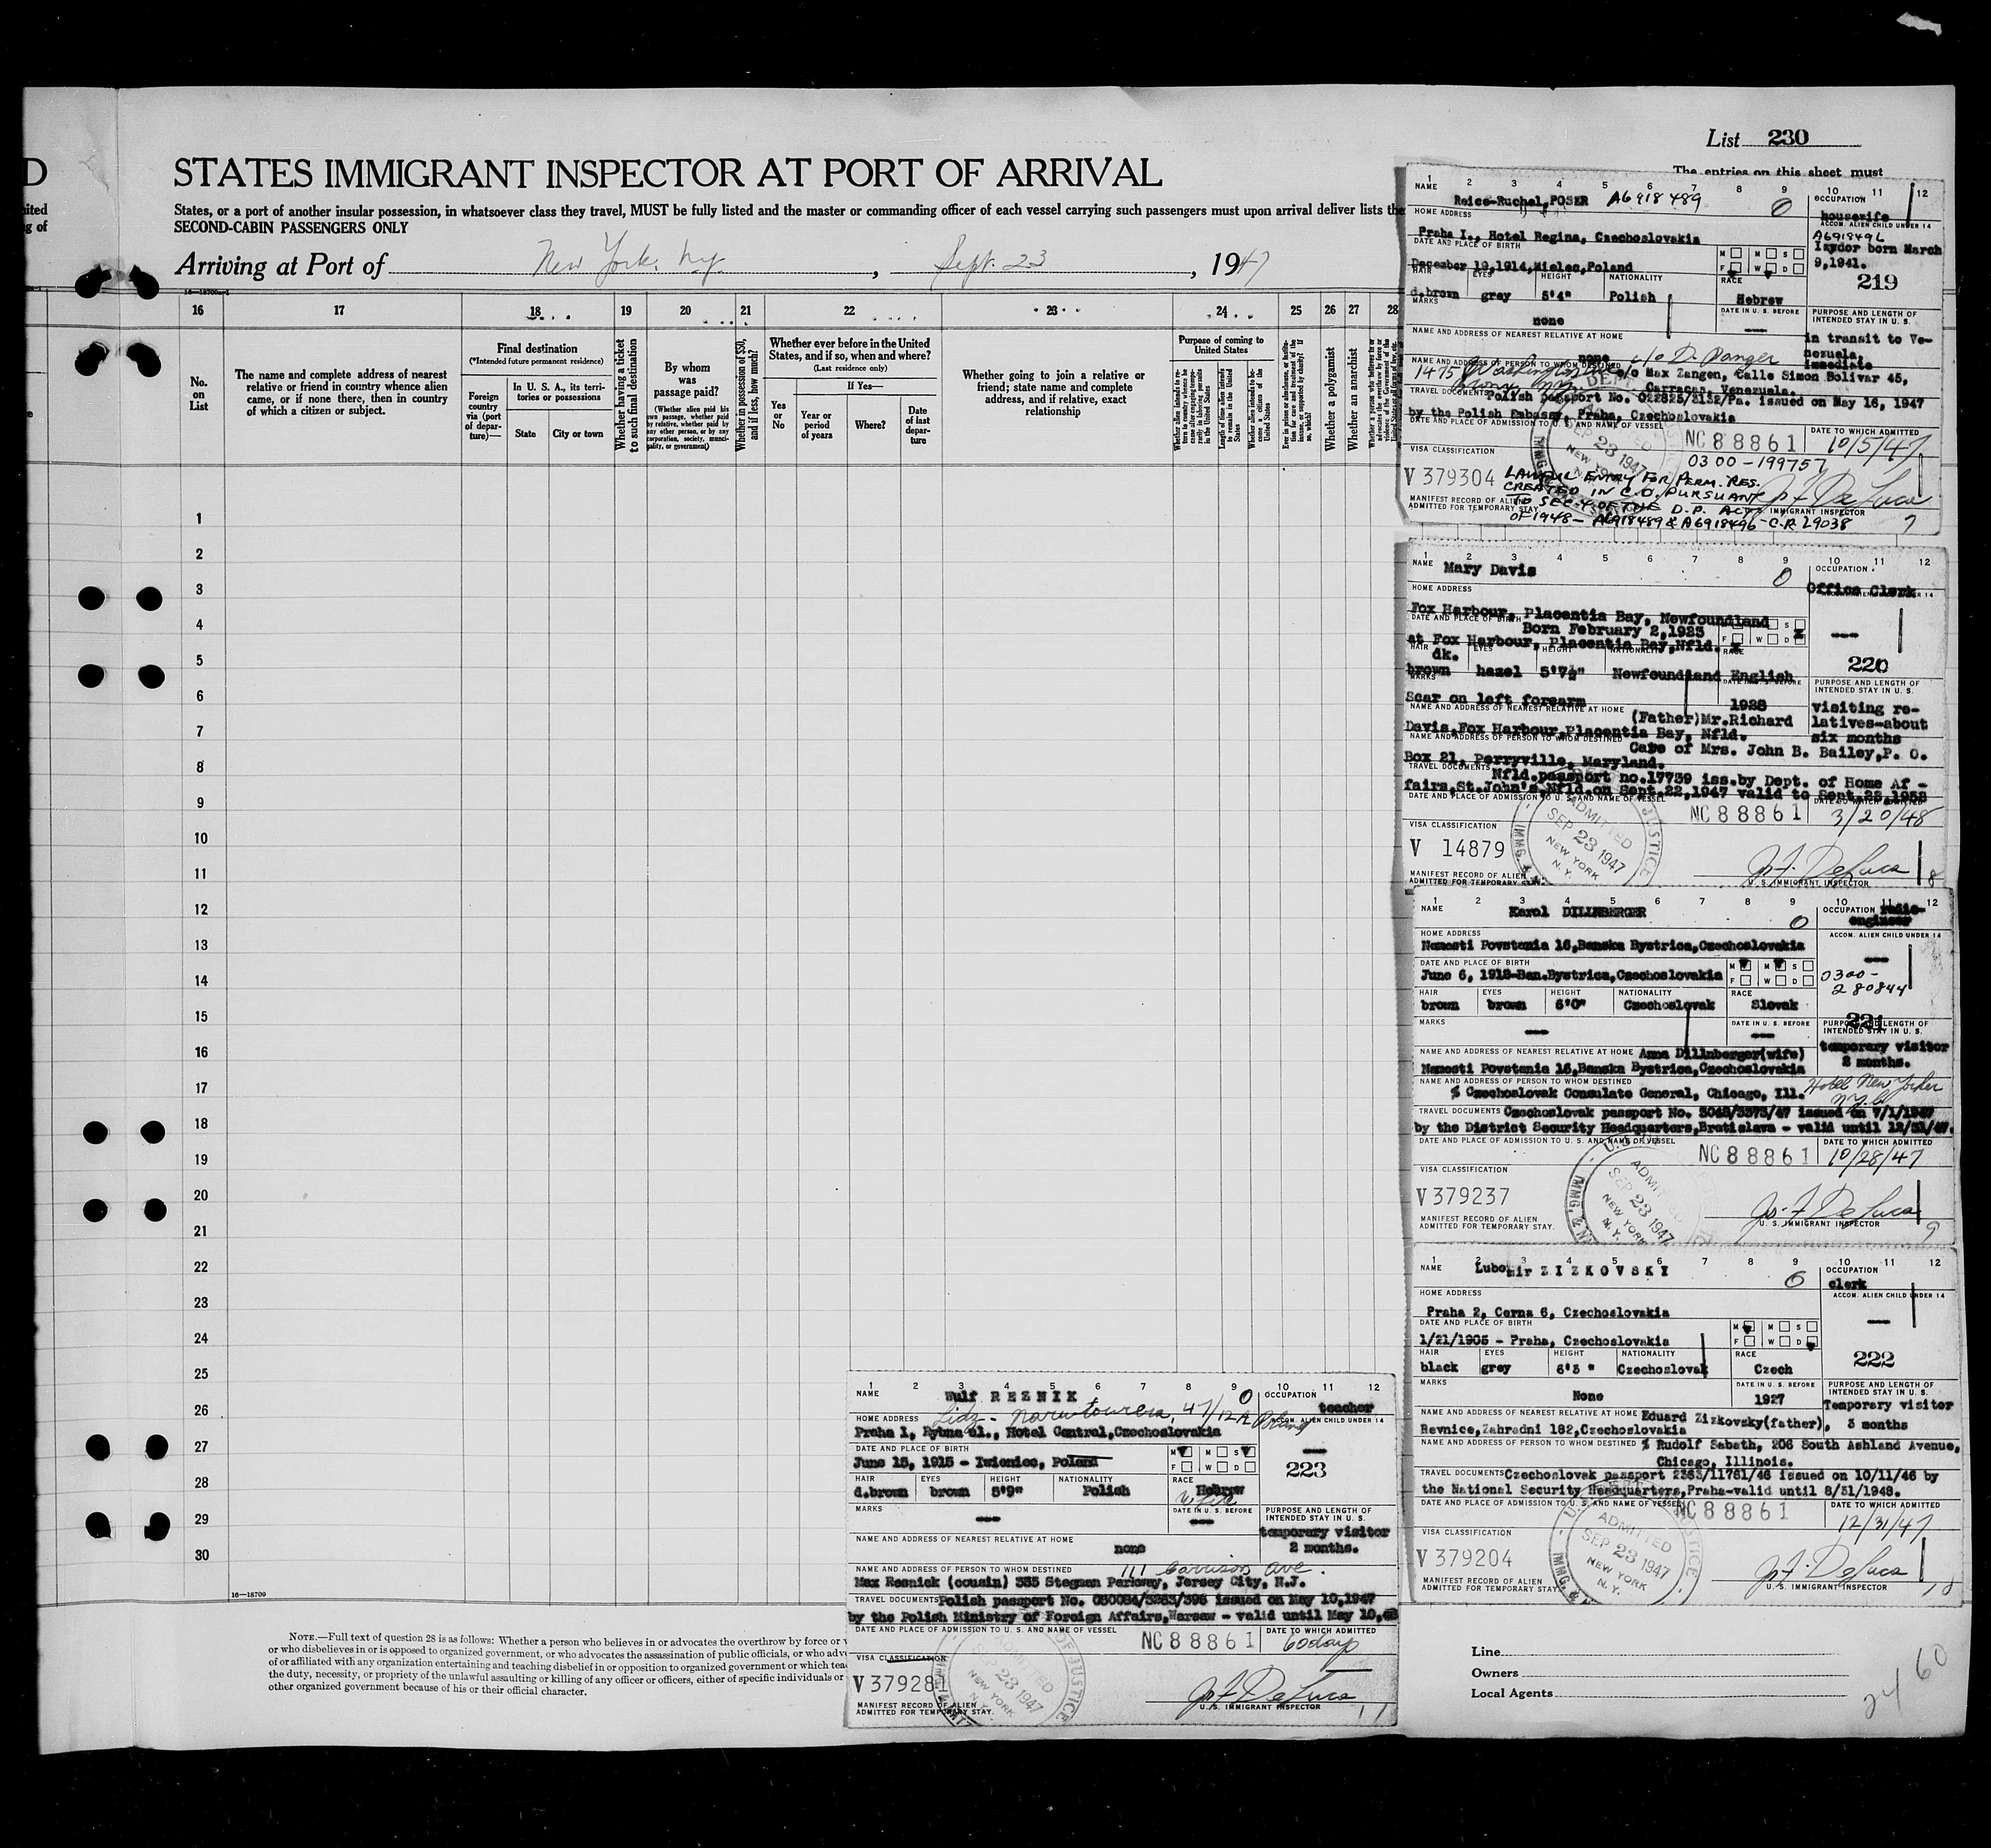 D
ited
g of
List 230
The entries on this sheet must
STATES IMMIGRANT INSPECTOR AT PORT OF ARRIVAL
States, or a port of another insular possession, in whatsoever class they travel, MUST be fully listed and the master or commanding officer of each vessel carrying such passengers must upon arrival deliver lists the
SECOND-CABIN PASSENGERS ONLY
Arriving at Port of New York, N.Y. , Sept. 23 , 1947
16 17 18 19 20 21 22 23 24 25 26 27 28
No. on List
The name and complete address of nearest relative or friend in country whence alien came, or if none there, then in country of which a citizen or subject.
Final destination
(*Intended future permanent residence)
Foreign country via (port of departure)—
In U. S. A., its territories or possessions
State
City or town
Whether having a ticket to such final destination
By whom was passage paid?
(Whether alien paid his own passage, whether paid by relative, whether paid by any other person, or by any corporation, society, municipality, or government)
Whether in possession of $50, and if less, how much?
Whether ever before in the United States, and if so, when and where?
(Last residence only)
Yes or No
If Yes—
Year or period of years
Where?
Date of last departure
Whether going to join a relative or friend; state name and complete address, and if relative, exact relationship
Purpose of coming to United States
Length of time alien intends to remain in the United States
Whether a polygamist
Whether an anarchist
1
2
3
4
5
6
7
8
9
10
11
12
13
14
15
16
17
18
19
20
21
22
23
24
25
26
27
28
29
30
16—18709
NOTE.—Full text of question 28 is as follows: Whether a person who believes in or advocates the overthrow by force or v
or who disbelieves in or is opposed to organized government, or who advocates the assassination of public officials, or who adv
of or affiliated with any organization entertaining and teaching disbelief in or opposition to organized government or which tea
the duty, necessity, or propriety of the unlawful assaulting or killing of any officer or officers, either of specific individuals or
other organized government because of his or their official character.
1 2 3 4 5 6 7 8 9 10 11 12
NAME Reice-Ruchel, POSER A6918489
OCCUPATION housewife
HOME ADDRESS
ACCOM. ALIEN CHILD UNDER 14
Praha I., Hotel Regina, Czechoslovakia
A6918496
Izydor born March 9,1941.
DATE AND PLACE OF BIRTH
December 19,1914,Mielec,Poland
M M S
F W D
219
HAIR EYES HEIGHT NATIONALITY RACE
d.brown grey 5'4" Polish Hebrew
MARKS
none
DATE IN U. S. BEFORE
---
PURPOSE AND LENGTH OF INTENDED STAY IN U. S.
in transit to Venezuela, immediate
NAME AND ADDRESS OF NEAREST RELATIVE AT HOME
none
NAME AND ADDRESS OF PERSON TO WHOM DESTINED
c/o Max Zangen, Calle Simon Bolivar 45,
Carracas, Venezuela.
TRAVEL DOCUMENTS
Polish passport No. 022825/3132/Pa. issued on May 16, 1947
by the Polish Embassy, Praha, Czechoslovakia
DATE AND PLACE OF ADMISSION TO U. S. AND NAME OF VESSEL
NC 88861
DATE TO WHICH ADMITTED
10/5/47
0300-199757
VISA CLASSIFICATION
V 379304
LAWFUL ENTRY FOR PERM. RES.
CREATED IN C.O. PURSUANT
TO SEC. 4 OF THE D.P. ACT
OF 1948 - A6918489 & A6918496 - C.R. 29038
MANIFEST RECORD OF ALIEN
ADMITTED FOR TEMPORARY STAY
Jos F DeLuca
U. S. IMMIGRANT INSPECTOR
7
1 2 3 4 5 6 7 8 9 10 11 12
NAME Mary Davis
OCCUPATION
Office Clerk
HOME ADDRESS
Fox Harbour, Placentia Bay, Newfoundland
DATE AND PLACE OF BIRTH
Born February 2,1923
at Fox Harbour, Placentia Bay,Nfld.
---
220
HAIR EYES HEIGHT NATIONALITY RACE
dk. brown hazel 5'7½" Newfoundland English
MARKS
Scar on left forearm
1928
PURPOSE AND LENGTH OF INTENDED STAY IN U. S.
visiting relatives-about six months
NAME AND ADDRESS OF NEAREST RELATIVE AT HOME
(Father)Mr.Richard
Davis,Fox Harbour,Placentia Bay, Nfld.
NAME AND ADDRESS OF PERSON TO WHOM DESTINED
Care of Mrs. John B. Bailey,P. O.
Box 21, Perryville, Maryland.
TRAVEL DOCUMENTS
Nfld.passport no.17739 iss.by Dept. of Home Af -
fairs,St.John's,Nfld.on Sept.22,1947 valid to Sept.22,1952
DATE AND PLACE OF ADMISSION TO U. S. AND NAME OF VESSEL
NC 88861
3/20/48
VISA CLASSIFICATION
V 14879
ADMITTED SEP 23 1947 NEW YORK N. Y.
MANIFEST RECORD OF ALIEN
ADMITTED FOR TEMPORARY STAY
Jos F. DeLuca
U. S. IMMIGRANT INSPECTOR
8
1 2 3 4 5 6 7 8 9 10 11 12
NAME Karol DILLNBERGER
OCCUPATION radio-engineer
HOME ADDRESS
ACCOM. ALIEN CHILD UNDER 14
Namesti Povstania 16,Banska Bystrica,Czechoslovakia
---
DATE AND PLACE OF BIRTH
June 6, 1912-Ban.Bystrica,Czechoslovakia
M M S
F W D
0300-280844
HAIR EYES HEIGHT NATIONALITY RACE
brown brown 6'0" Czechoslovak Slovak
221
MARKS
---
DATE IN U. S. BEFORE
---
PURPOSE AND LENGTH OF INTENDED STAY IN U. S.
temporary visitor
2 months.
NAME AND ADDRESS OF NEAREST RELATIVE AT HOME Anna Dillnberger(wife)
Namesti Povstania 16,Banska Bystrica,Czechoslovakia
NAME AND ADDRESS OF PERSON TO WHOM DESTINED
% Czechoslovak Consulate General, Chicago, Ill.
Hotel New Yorker N.Y.C.
TRAVEL DOCUMENTS Czechoslovak passport No. 3048/3373/47 issued on 7/1/1947
by the District Security Headquarters,Bratislava - valid until 12/31/47.
DATE AND PLACE OF ADMISSION TO U. S. AND NAME OF VESSEL
NC 88861
DATE TO WHICH ADMITTED
10/28/47
VISA CLASSIFICATION
V 379237
SEP 23 1947 NEW YORK N. Y.
MANIFEST RECORD OF ALIEN
ADMITTED FOR TEMPORARY STAY.
Jos. F DeLuca
U. S. IMMIGRANT INSPECTOR
9
1 2 3 4 5 6 7 8 9 10 11 12
NAME Lubomir ZIZKOVSKY
OCCUPATION
clerk
HOME ADDRESS
ACCOM. ALIEN CHILD UNDER 14
Praha 2, Cerna 6, Czechoslovakia
---
DATE AND PLACE OF BIRTH
1/21/1905 - Praha, Czechoslovakia
M M S
F W D
HAIR EYES HEIGHT NATIONALITY RACE
black grey 6'3" Czechoslovak Czech
222
MARKS
None
DATE IN U. S. BEFORE
1927
PURPOSE AND LENGTH OF INTENDED STAY IN U. S.
Temporary visitor
3 months
NAME AND ADDRESS OF NEAREST RELATIVE AT HOME Eduard Zizkovsky(father),
Revnice,Zahradni 182,Czechoslovakia
NAME AND ADDRESS OF PERSON TO WHOM DESTINED % Rudolf Sabath, 206 South Ashland Avenue,
Chicago, Illinois.
TRAVEL DOCUMENTS Czechoslovak passport 2363/11761/46 issued on 10/11/46 by
the National Security Headquarters,Praha-valid until 8/31/1948.
DATE AND PLACE OF ADMISSION TO U. S. AND NAME OF VESSEL
NC 88861
DATE TO WHICH ADMITTED
12/31/47
VISA CLASSIFICATION
V 379204
ADMITTED SEP 23 1947 NEW YORK N. Y.
MANIFEST RECORD OF ALIEN
ADMITTED FOR TEMPORARY STAY.
Jos F. DeLuca
U. S. IMMIGRANT INSPECTOR
10
1 2 3 4 5 6 7 8 9 10 11 12
NAME Wulf REZNIK
OCCUPATION
teacher
HOME ADDRESS 47/12A Poland
ACCOM. ALIEN CHILD UNDER 14
Praha 1, Rybna ul., Hotel Central,Czechoslovakia
---
DATE AND PLACE OF BIRTH
June 15, 1915 - Iwieniec, Poland
M M S
F W D
223
HAIR EYES HEIGHT NATIONALITY RACE
d.brown brown 5'9" Polish Hebrew
MARKS
---
DATE IN U. S. BEFORE
---
PURPOSE AND LENGTH OF INTENDED STAY IN U. S.
temporary visitor
2 months.
NAME AND ADDRESS OF NEAREST RELATIVE AT HOME
none
NAME AND ADDRESS OF PERSON TO WHOM DESTINED 111 Garrison Ave.
Max Resnick (cousin) 335 Stegman Parkway, Jersey City, N.J.
TRAVEL DOCUMENTS Polish passport No. 030084/3263/396 issued on May 10,1947
by the Polish Ministry of Foreign Affairs,Warsaw - valid until May 10,48
DATE AND PLACE OF ADMISSION TO U. S. AND NAME OF VESSEL
NC 88861
DATE TO WHICH ADMITTED
60 days
VISA CLASSIFICATION
V 37928
ADMITTED SEP 23 1947 NEW YORK N. Y.
MANIFEST RECORD OF ALIEN
ADMITTED FOR TEMPORARY STAY.
Jos F DeLuca
U. S. IMMIGRANT INSPECTOR
11
Line
Owners
Local Agents
24 60